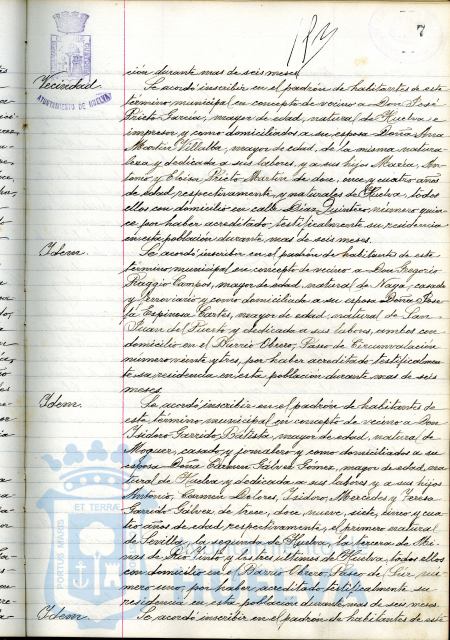 7
183
AYUNTAMIENTO DE HUELVA
Vecindad
ción durante mas de seis meses.
Se acordó inscribir en el padrón de habitantes de este
término municipal en concepto de vecino a Don José
Prieto García, mayor de edad, natural de Huelva e
impresor, y como domiciliados a su esposa Doña Ana
Martín Villalba, mayor de edad, de la misma natura
leza y dedicada a sus labores, y a sus hijos María, An
tonio y Eloisa Prieto Martín de doce, once y cuatro años
de edad, respectivamente, y naturales de Huelva, todos
ellos con domicilio en calle Díaz Quintero, número quin
ce, por haber acreditado testificalmente su residencia
en esta población durante mas de seis meses.
Idem.
Se acordó inscribir en el padrón de habitantes de este
término municipal en concepto de vecino a Don Gregorio
Raggio Campos, mayor de edad, natural de casado
y ferroviario y como domiciliado a su esposa Doña Jose
fa Espinosa Cartés, mayor de edad, natural de San
Juan del Puerto y dedicada a sus labores, ambos con
domicilio en el Barrio Obrero, Paseo de Circunvalación
número veinte y tres, por haber acreditado testificalmen
te su residencia en esta población durante mas de seis
meses.
Idem.
Se acordó inscribir en el padrón de habitantes de
este término municipal en concepto de vecino a Don
Isidoro Garrido Batista, mayor de edad, natural de
Moguer, casado y jornalero y como domiciliados a su
esposa Doña Carmen Gálvez Gómez, mayor de edad, na
tural de Huelva y dedicada a sus labores y a sus hijos
Antonio, Carmen, Dolores, Isidoro, Mercedes y Teresa
Garrido Gálvez de trece, doce, nueve, siete, cinco y cua
tro años de edad, respectivamente, el primero natural
de Sevilla, la segunda de Huelva, la tercera de Mi
nas de Rio Tinto y los tres últimos de Huelva, todos ellos
con domicilio en el Barrio Obrero, Paseo de Sur, nú
mero uno, por haber acreditado testificalmente su
residencia en esta población durante mas de seis meses.
Idem.
Se acordó inscribir en el padrón de habitantes de este
PORTUS MARIS
ET TERRAE
HUELVA